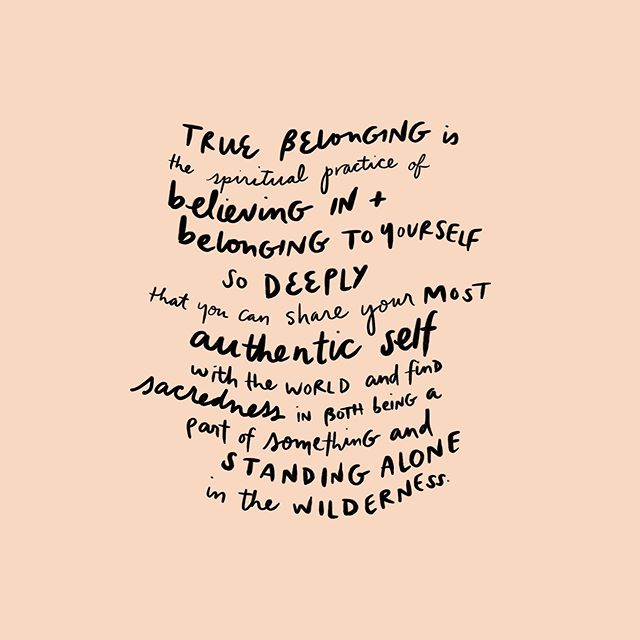 TRUE BELONGING is
the spiritual practice of
believing IN +
belonging TO YOURSELF
SO DEEPLY
that you can share your MOST
authentic self
with the WORLD and find
sacredness IN BOTH BEING a
part of something and
STANDING ALONE
in the WILDERNESS.